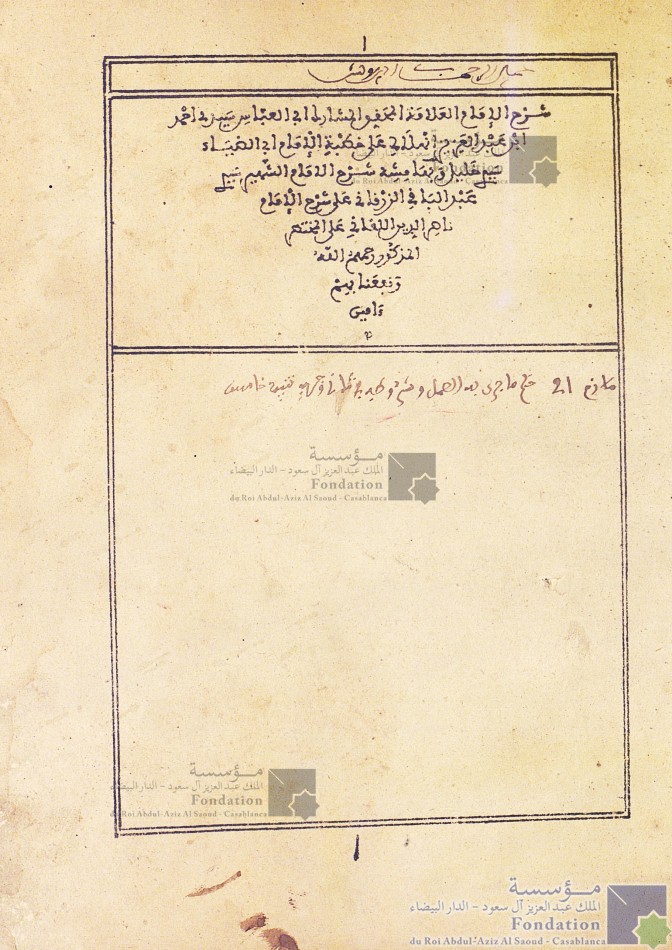 ١
شرح الإمام العلامة المحقق المشارك أبي العباس سيدي أحمد
ابن عبد العزيز الهلالي على خطبة الإمام أبي الضياء
سيدي خليل وبهامشه شرح الإمام الشهير سيدي
عبد الباقي الزرقاني على شرح الإمام
ناصر الدين اللقاني على المختصر
المذكور رحمهم الله
ونفعنا بهم
ءامين
ملزم 21
مؤسسة
الملك عبد العزيز آل سعود - الدار البيضاء
Fondation
du Roi Abdul-Aziz Al Saoud - Casablanca
مؤسسة
الملك عبد العزيز آل سعود - الدار البيضاء
Fondation
du Roi Abdul-Aziz Al Saoud - Casablanca
١
مؤسسة
الملك عبد العزيز آل سعود - الدار البيضاء
Fondation
du Roi Abdul-Aziz Al Saoud - Casablanca